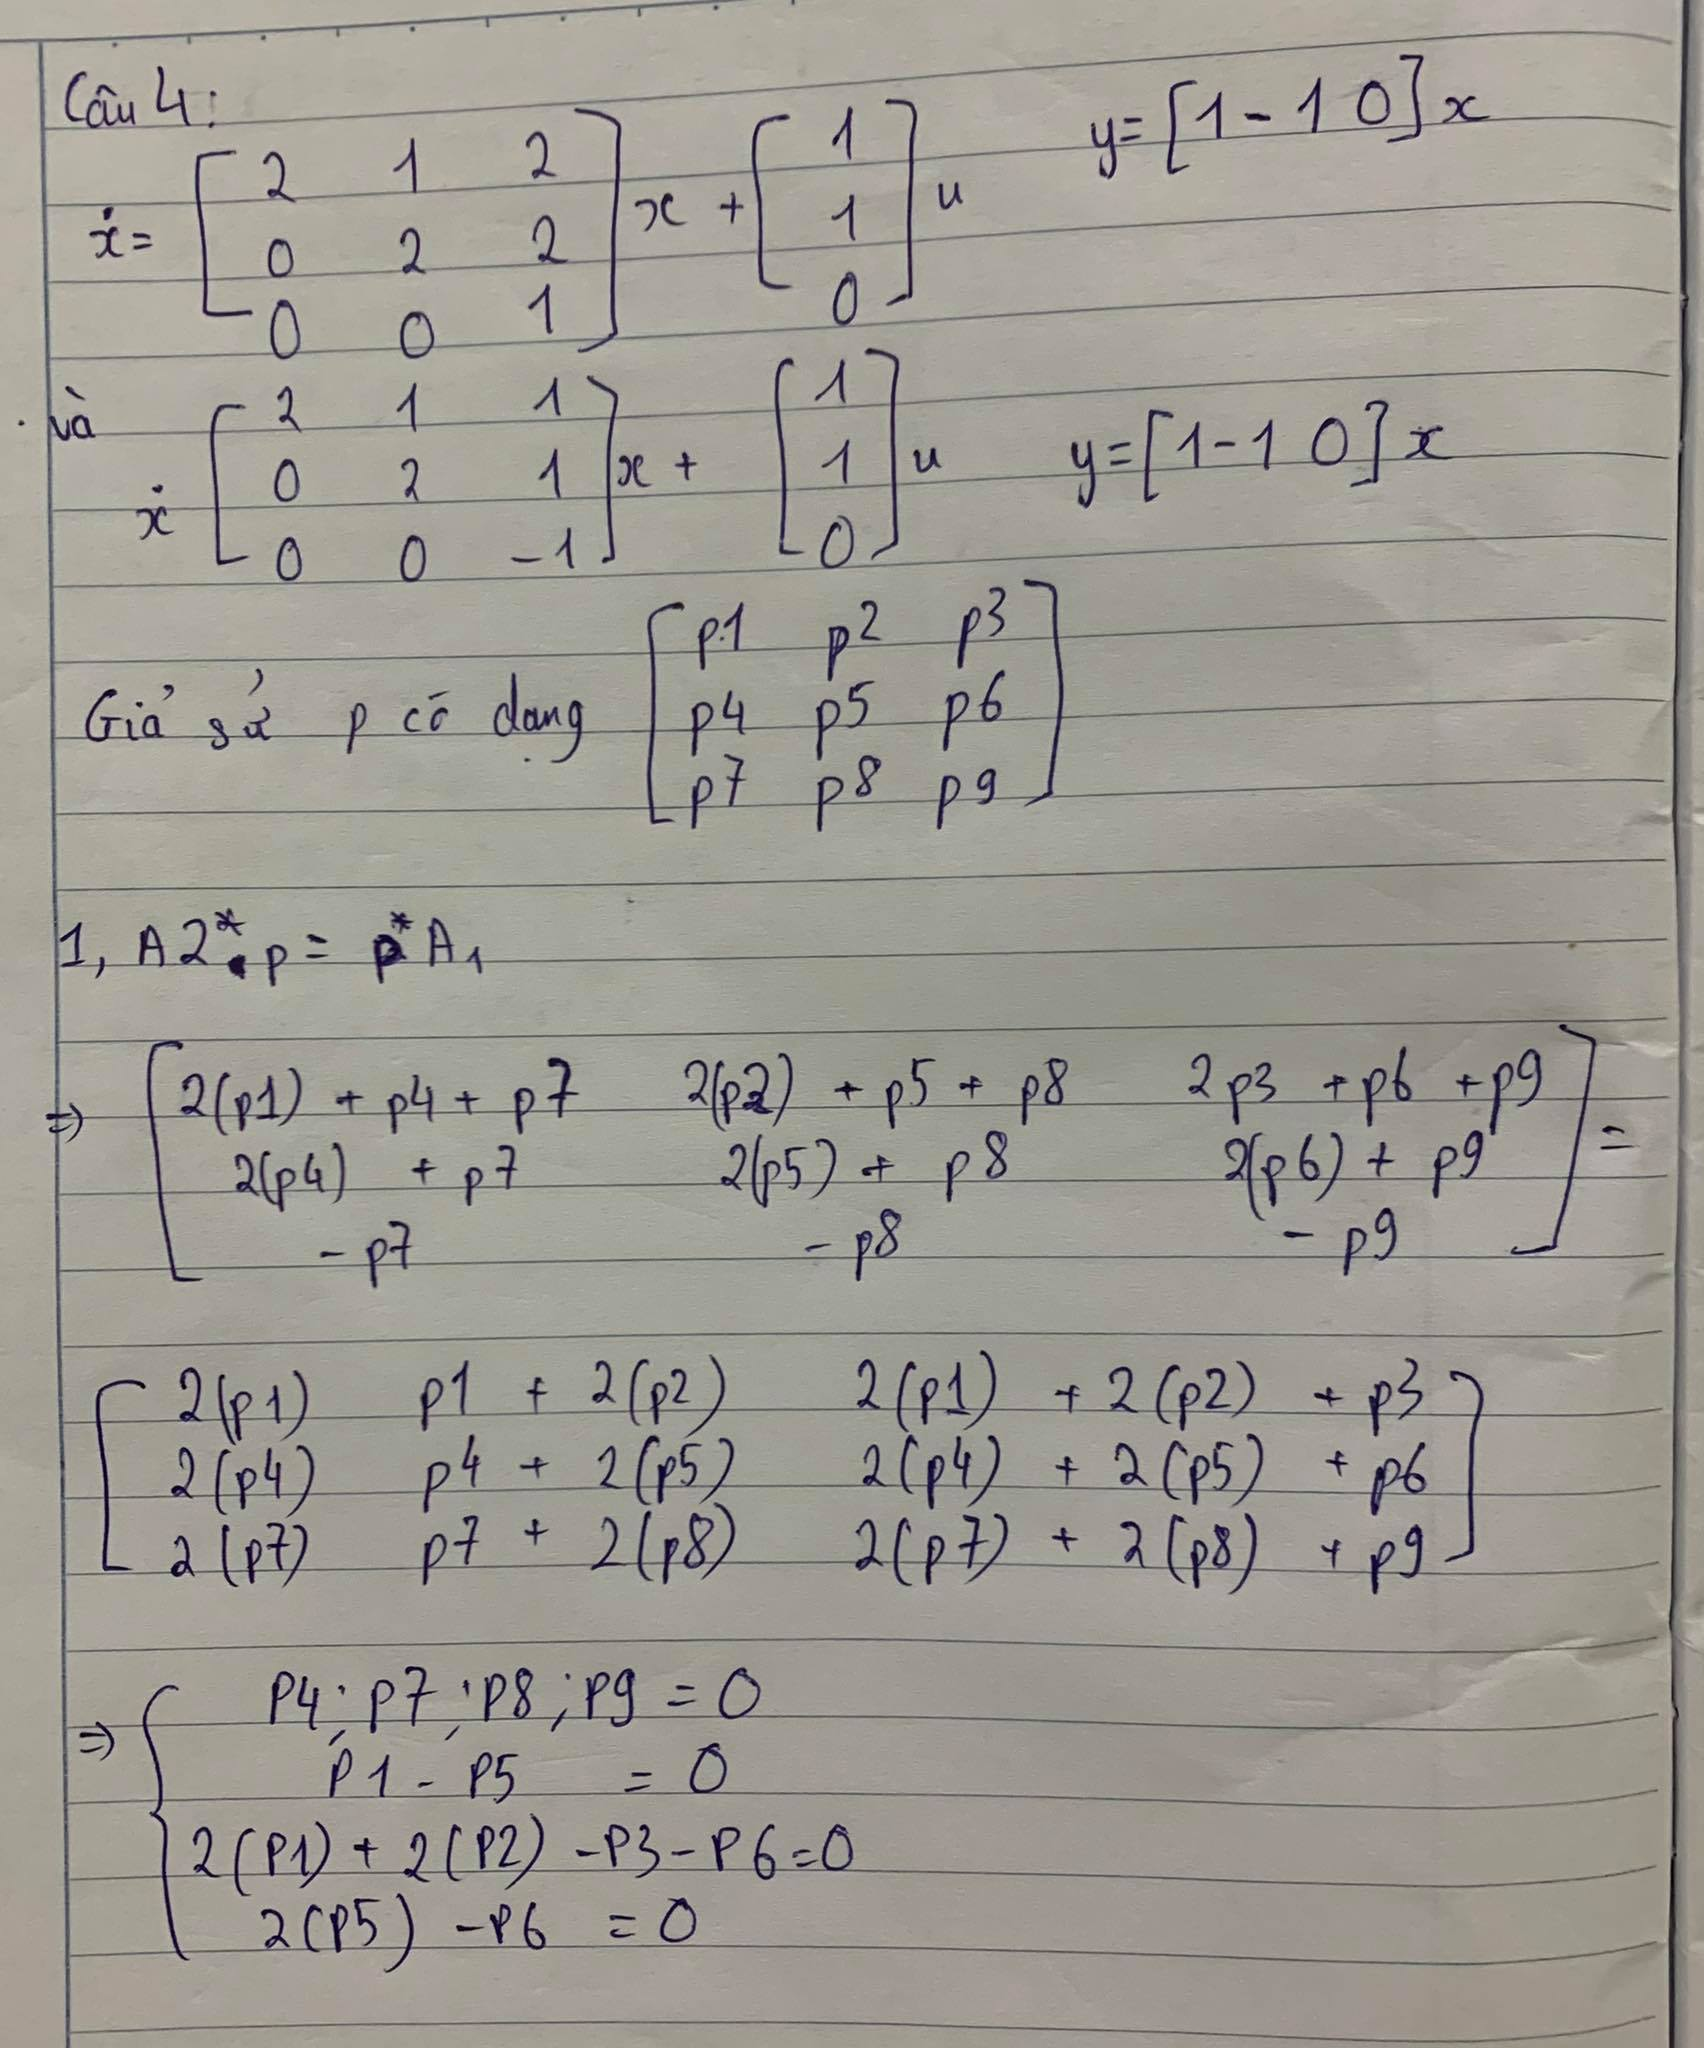 Câu 4:
ẋ = [ 2 1 2 ; 0 2 2 ; 0 0 1 ] x + [ 1 ; 1 ; 0 ] u y = [1 - 1 0] x
và
ẋ [ 2 1 1 ; 0 2 1 ; 0 0 -1 ] x + [ 1 ; 1 ; 0 ] u y = [1 - 1 0] x
Giả sử p có dạng [ p1 p2 p3 ; p4 p5 p6 ; p7 p8 p9 ]
1, A2* . p = p* A₁
⇒ [ 2(p1) + p4 + p7 2(p2) + p5 + p8 2p3 + p6 + p9
2(p4) + p7 2(p5) + p8 2(p6) + p9
- p7 - p8 - p9 ] =
[ 2(p1) p1 + 2(p2) 2(p1) + 2(p2) + p3
2(p4) p4 + 2(p5) 2(p4) + 2(p5) + p6
2(p7) p7 + 2(p8) 2(p7) + 2(p8) + p9 ]
⇒ { P4; P7; P8; P9 = 0
P1 - P5 = 0
2(P1) + 2(P2) - P3 - P6 = 0
2(P5) - P6 = 0